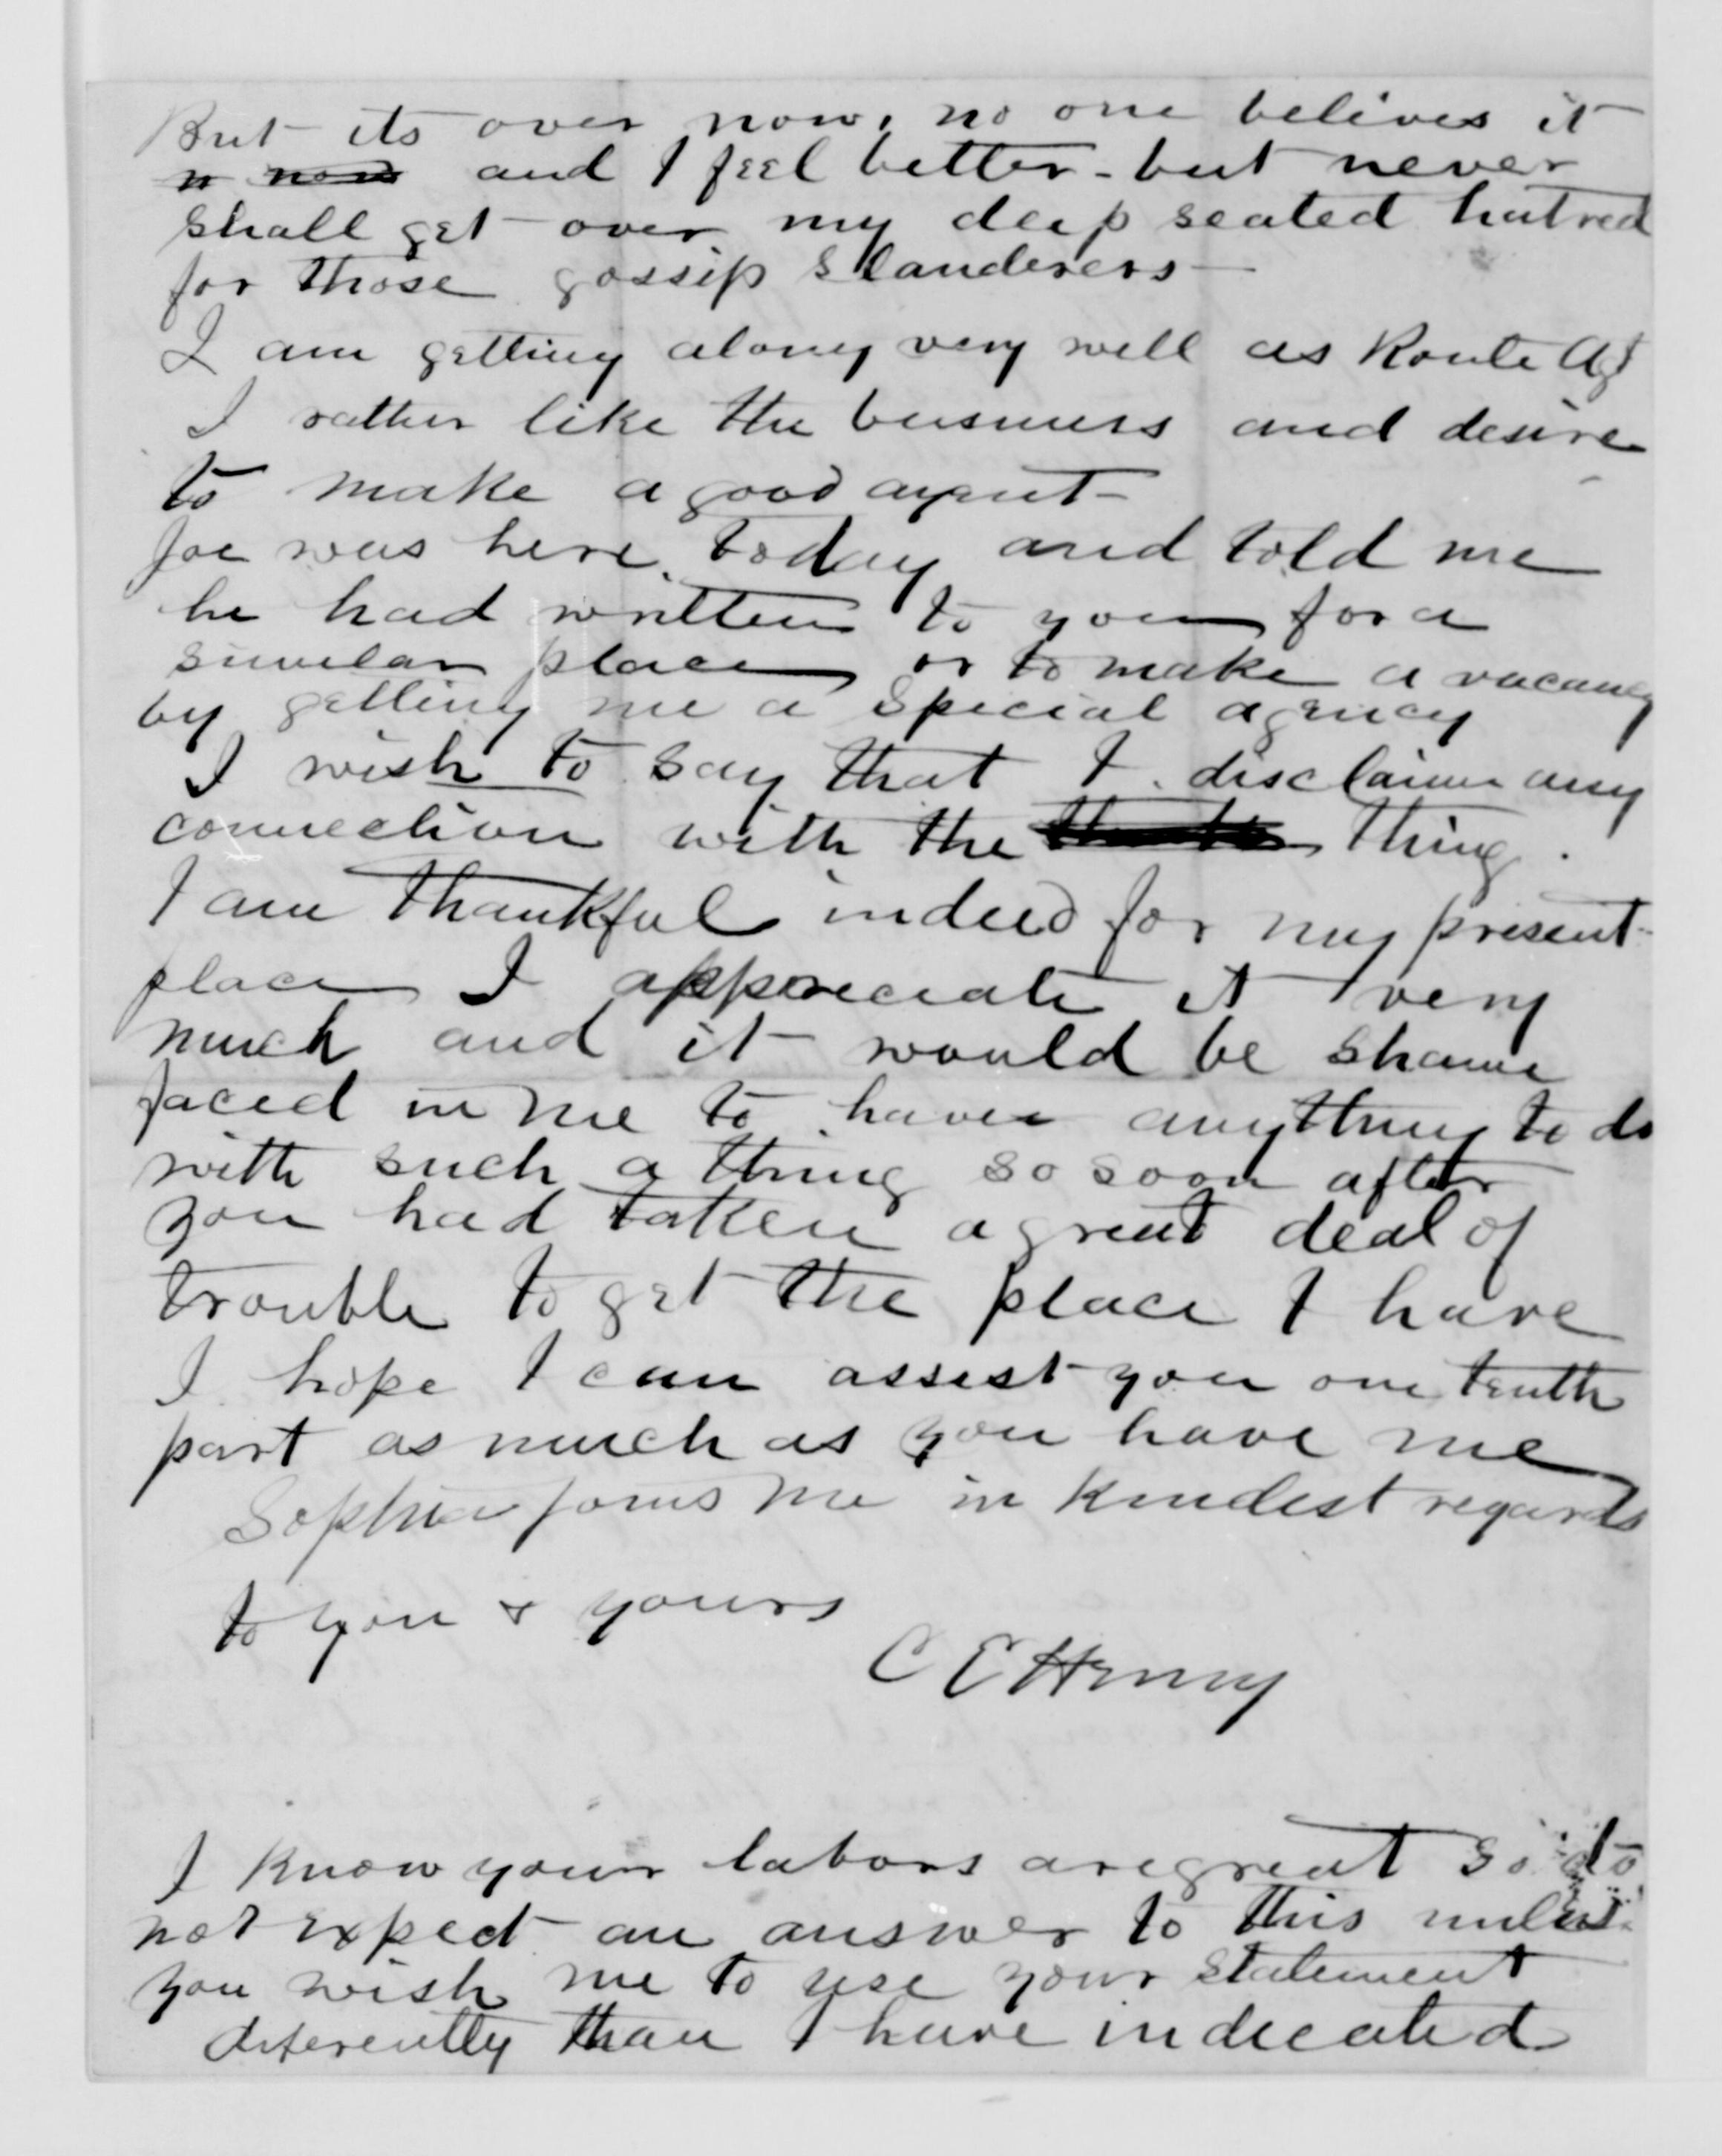 But its over now, no one belives it
n now and I feel better - but never
shall get over my deep seated hatred
for those gossip slanderers —
I am getting along very well as Route Agt
I rather like the business and desire
to make a good agent -
Joe was here today and told me
he had written to you for a
similar place or to make a vacancy
by getting me a special agency
I wish to say that I disclaim any
connection with the thing.
I am thankful indeed for my present
place I appreciate it very
much and it would be shame
faced in me to have anything to do
with such a thing so soon after
you had taken a great deal of
trouble to get the place I have
I hope I can assist you one tenth
part as much as you have me
Sophia joins me in kindest regards
to you & yours
C E Henry
I know your labors are great so do
not expect an answer to this unless
you wish me to use your statement
diferently than I have indicated